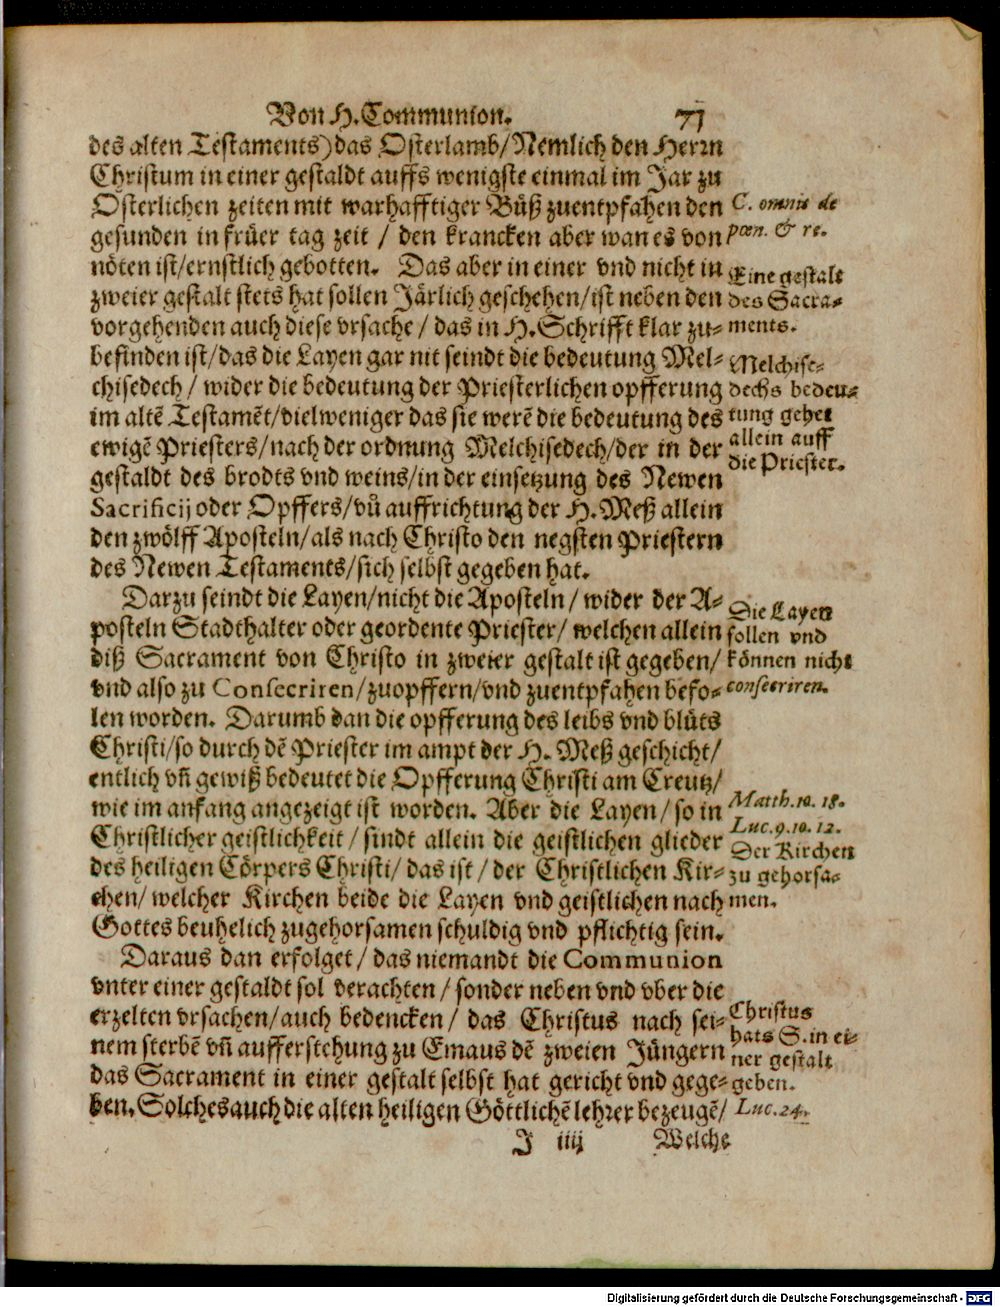 Von H. Communion. 71
des alten Testaments) das Osterlamb/ Nemlich den Herrn
Christum in einer gestaldt auffs wenigste einmal im Jar zu
Osterlichen zeiten mit warhafftiger Bůß zuentpfahen den
gesunden in früer tag zeit / den krancken aber wan es von
nöten ist/ ernstlich gebotten. Das aber in einer vnd nicht in
zweier gestalt stets hat sollen Järlich geschehen/ ist neben den
vorgehenden auch diese vrsache / das in H. Schrifft klar zu-
befinden ist/ das die Layen gar nit seindt die bedeutung Mel-
chisedech / wider die bedeutung der Priesterlichen opfferung
im altẽ Testamẽt/ vielweniger das sie werẽ die bedeutung des
ewigẽ Priesters/ nach der ordnung Melchisedech/ der in der
gestaldt des brodts vnd weins/ in der einsetzung des Newen
Sacrificij oder Opffers/ vñ auffrichtung der H. Meß allein
den zwölff Aposteln/ als nach Christo den negsten Priestern
des Newen Testaments/ sich selbst gegeben hat.
Darzu seindt die Layen/ nicht die Aposteln / wider der A-
posteln Stadthalter oder geordente Priester/ welchen allein
diß Sacrament von Christo in zweier gestalt ist gegeben/
vnd also zu Consecriren/ zuopffern/ vnd zuentpfahen befo-
len worden. Darumb dan die opfferung des leibs vnd blůts
Christi/ so durch dẽ Priester im ampt der H. Meß geschicht/
entlich vñ gewiß bedeutet die Opfferung Christi am Creutz/
wie im anfang angezeigt ist worden. Aber die Layen / so in
Christlicher geistlichkeit / sindt allein die geistlichen glieder
des heiligen Cörpers Christi/ das ist / der Christlichen Kir-
chen/ welcher Kirchen beide die Layen vnd geistlichen nach
Gottes beuhelich zugehorsamen schuldig vnd pflichtig sein.
Daraus dan erfolget / das niemandt die Communion
vnter einer gestaldt sol verachten / sonder neben vnd vber die
erzelten vrsachen/ auch bedencken / das Christus nach sei-
nem sterbẽ vñ aufferstehung zu Emaus dẽ zweien Jüngern
das Sacrament in einer gestalt selbst hat gericht vnd gege-
ben. Solches auch die alten heiligen Göttlichẽ lehrer bezeugẽ/
J iiij Welche
C. omnis de
pœn. & re.
Eine gestalt
des Sacra-
ments.
Melchise-
dechs bedeu-
tung gehet
allein auff
die Priester.
Die Layen
sollen vnd
können nicht
consecriren.
Matth. 10. 18.
Luc. 9. 10. 12.
Der Kirchen
zu gehorsa-
men.
Christus
hats S. in ei-
ner gestalt
geben.
Luc. 24.
Digitalisierung gefördert durch die Deutsche Forschungsgemeinschaft - DFG